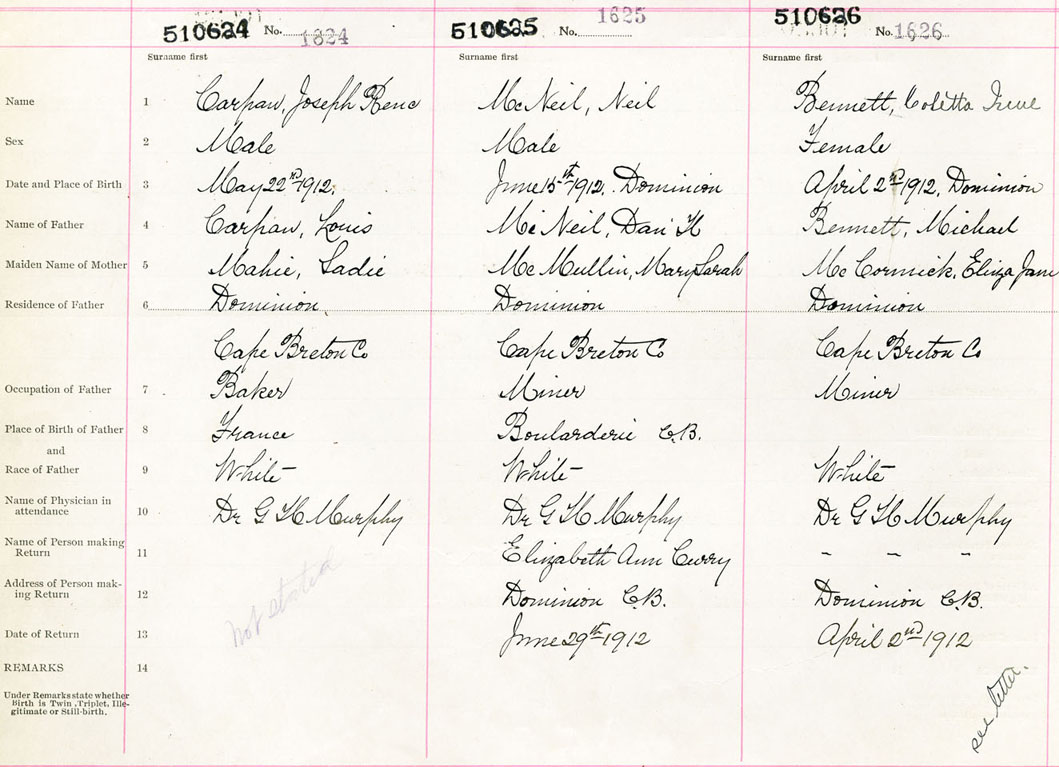 510624 No. 1624 510625 No. 1625 510626 No. 1626
Surname first Surname first Surname first
Name 1 Carpan, Joseph Rene McNeil, Neil Bennett, Coletta Irene
Sex 2 Male Male Female
Date and Place of Birth 3 May 22nd 1912. June 15th 1912. Dominion April 2nd 1912, Dominion
Name of Father 4 Carpan, Louis McNeil, Dan H Bennett, Michael
Maiden Name of Mother 5 Mahie, Sadie McMullin, Mary Sarah McCormick, Eliza Jane
Residence of Father 6 Dominion, Dominion Dominion
Cape Breton Co Cape Breton Co Cape Breton Co
Occupation of Father 7 Baker Miner Miner
Place of Birth of Father 8 France Boularderie C.B.
and
Race of Father 9 White White White
Name of Physician in
attendance 10 Dr G H Murphy Dr G H Murphy Dr G H Murphy
Name of Person making
Return 11 Elizabeth Ann Curry - - -
Address of Person mak-
ing Return 12 Dominion C.B. Dominion C.B.
not stated
Date of Return 13 June 29th 1912 April 2nd 1912
REMARKS 14
Under Remarks state whether
Birth is Twin, Triplet, Ille-
gitimate or Still-birth.
see letter.